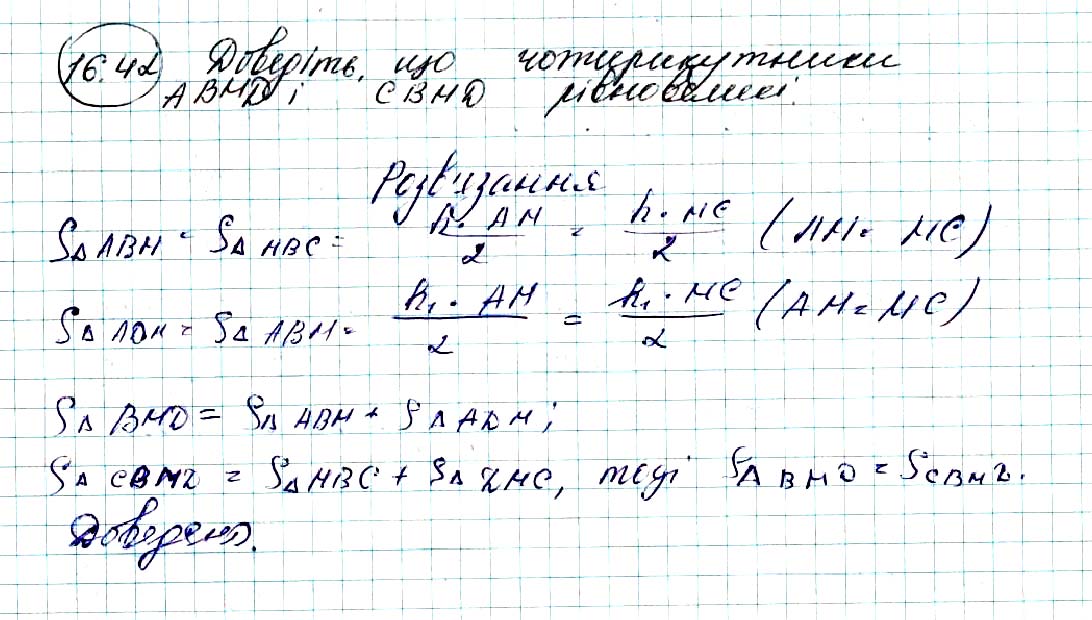 16.42 Доведіть, що чотирикутники
ABMD і CBMD рівновеликі.
Розв'язання
S△ABM = S△MBC = h·AM/2 = h·MC/2 (AM = MC)
S△ADM = S△ABM = h₁·AM/2 = h₁·MC/2 (AM = MC)
S△BMD = S△ABM + S△ADM;
S△CBMD = S△MBC + S△DMC, тоді SABMD = SCBMD.
Доведено.